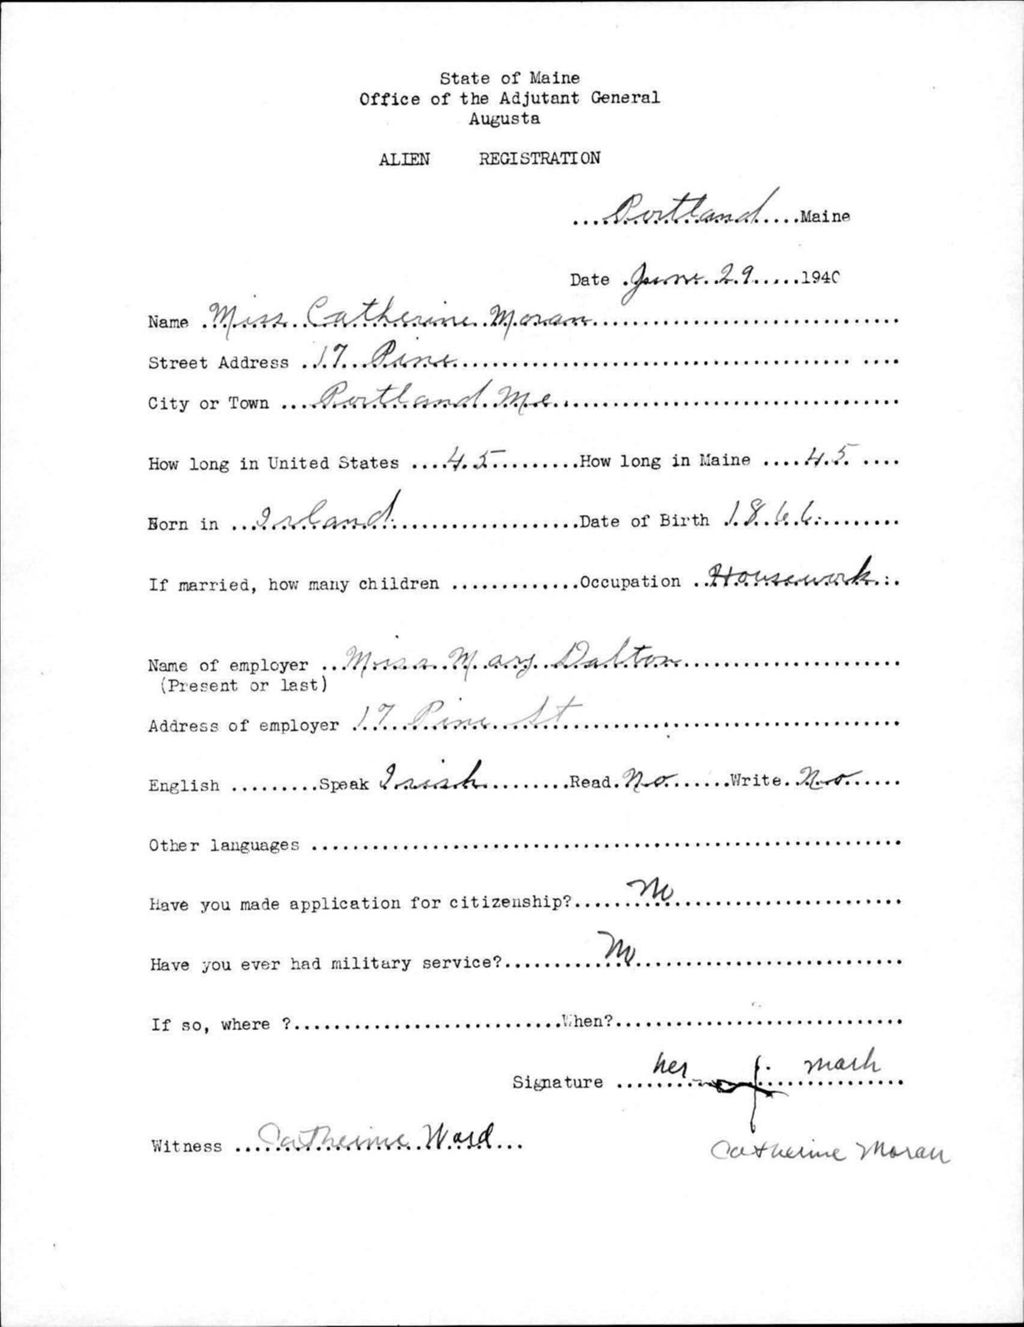 State of Maine
Office of the Adjutant General
Augusta
ALIEN REGISTRATION
...Portland....Maine
Date .June 29.....1940
Name .Miss Catherine Moran....................................
Street Address .17 Pine....................................
City or Town ...Portland Me....................................
How long in United States ....45.........How long in Maine ....45. ....
Born in ...Irland.....................Date of Birth 1866.........
If married, how many children .............Occupation ..Housework...
Name of employer ..Miss Mary Dalton..........................
(Present or last)
Address of employer 17 Pine St....................................
English .........Speak Irish.........Read.No.......Write..No......
Other languages ......................................................
Have you made application for citizenship?......No..........................
Have you ever had military service?..........No..............................
If so, where ?..........................When?..............................
her mark
Signature ..............................
Witness ...Catherine Ward...
Catherine Moran